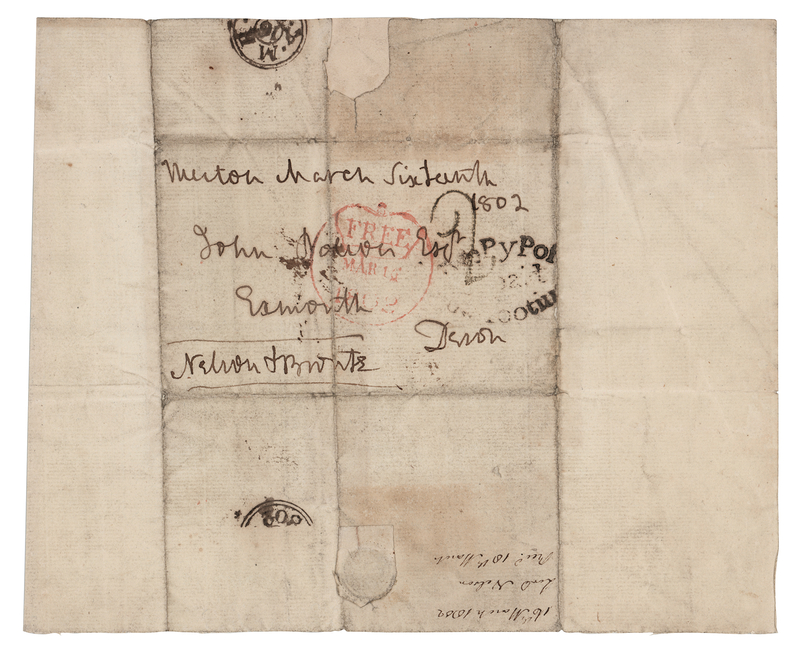 Merton March Sixteenth
1802
John Esqr.
Exmouth
Devon
Nelson & Bronte
FREE
MAR 17
1802
Py Po
Paid
Tootin
802
16th March 1802
Lord Nelson
18th March